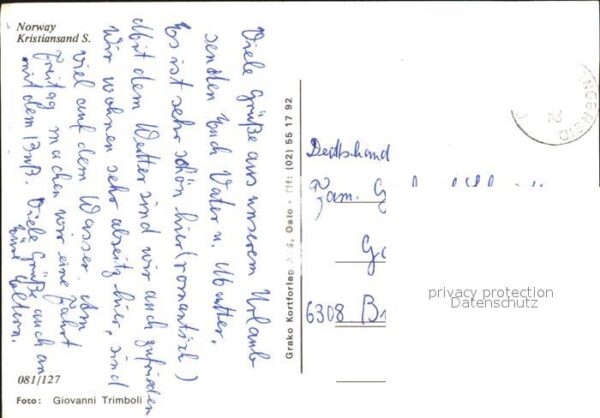 Norway
Kristiansand S.
Viele Grüße aus unserem Urlaub
senden Euch Vater u. Mutter.
Es ist sehr schön hier (romantisch)
Mit dem Wetter sind wir auch zufrieden
Wir wohnen sehr abseits hier, sind
viel auf dem Wasser. Am
Freitag machen wir eine Fahrt
mit dem Bus. Viele Grüße auch an
Eure Eltern.
081/127
Foto: Giovanni Trimboli
Grako Kortforlag A/S, Oslo - Tlf: (02) 55 17 92
Deutschland
Fam. G
6308 B
privacy protection
Datenschutz